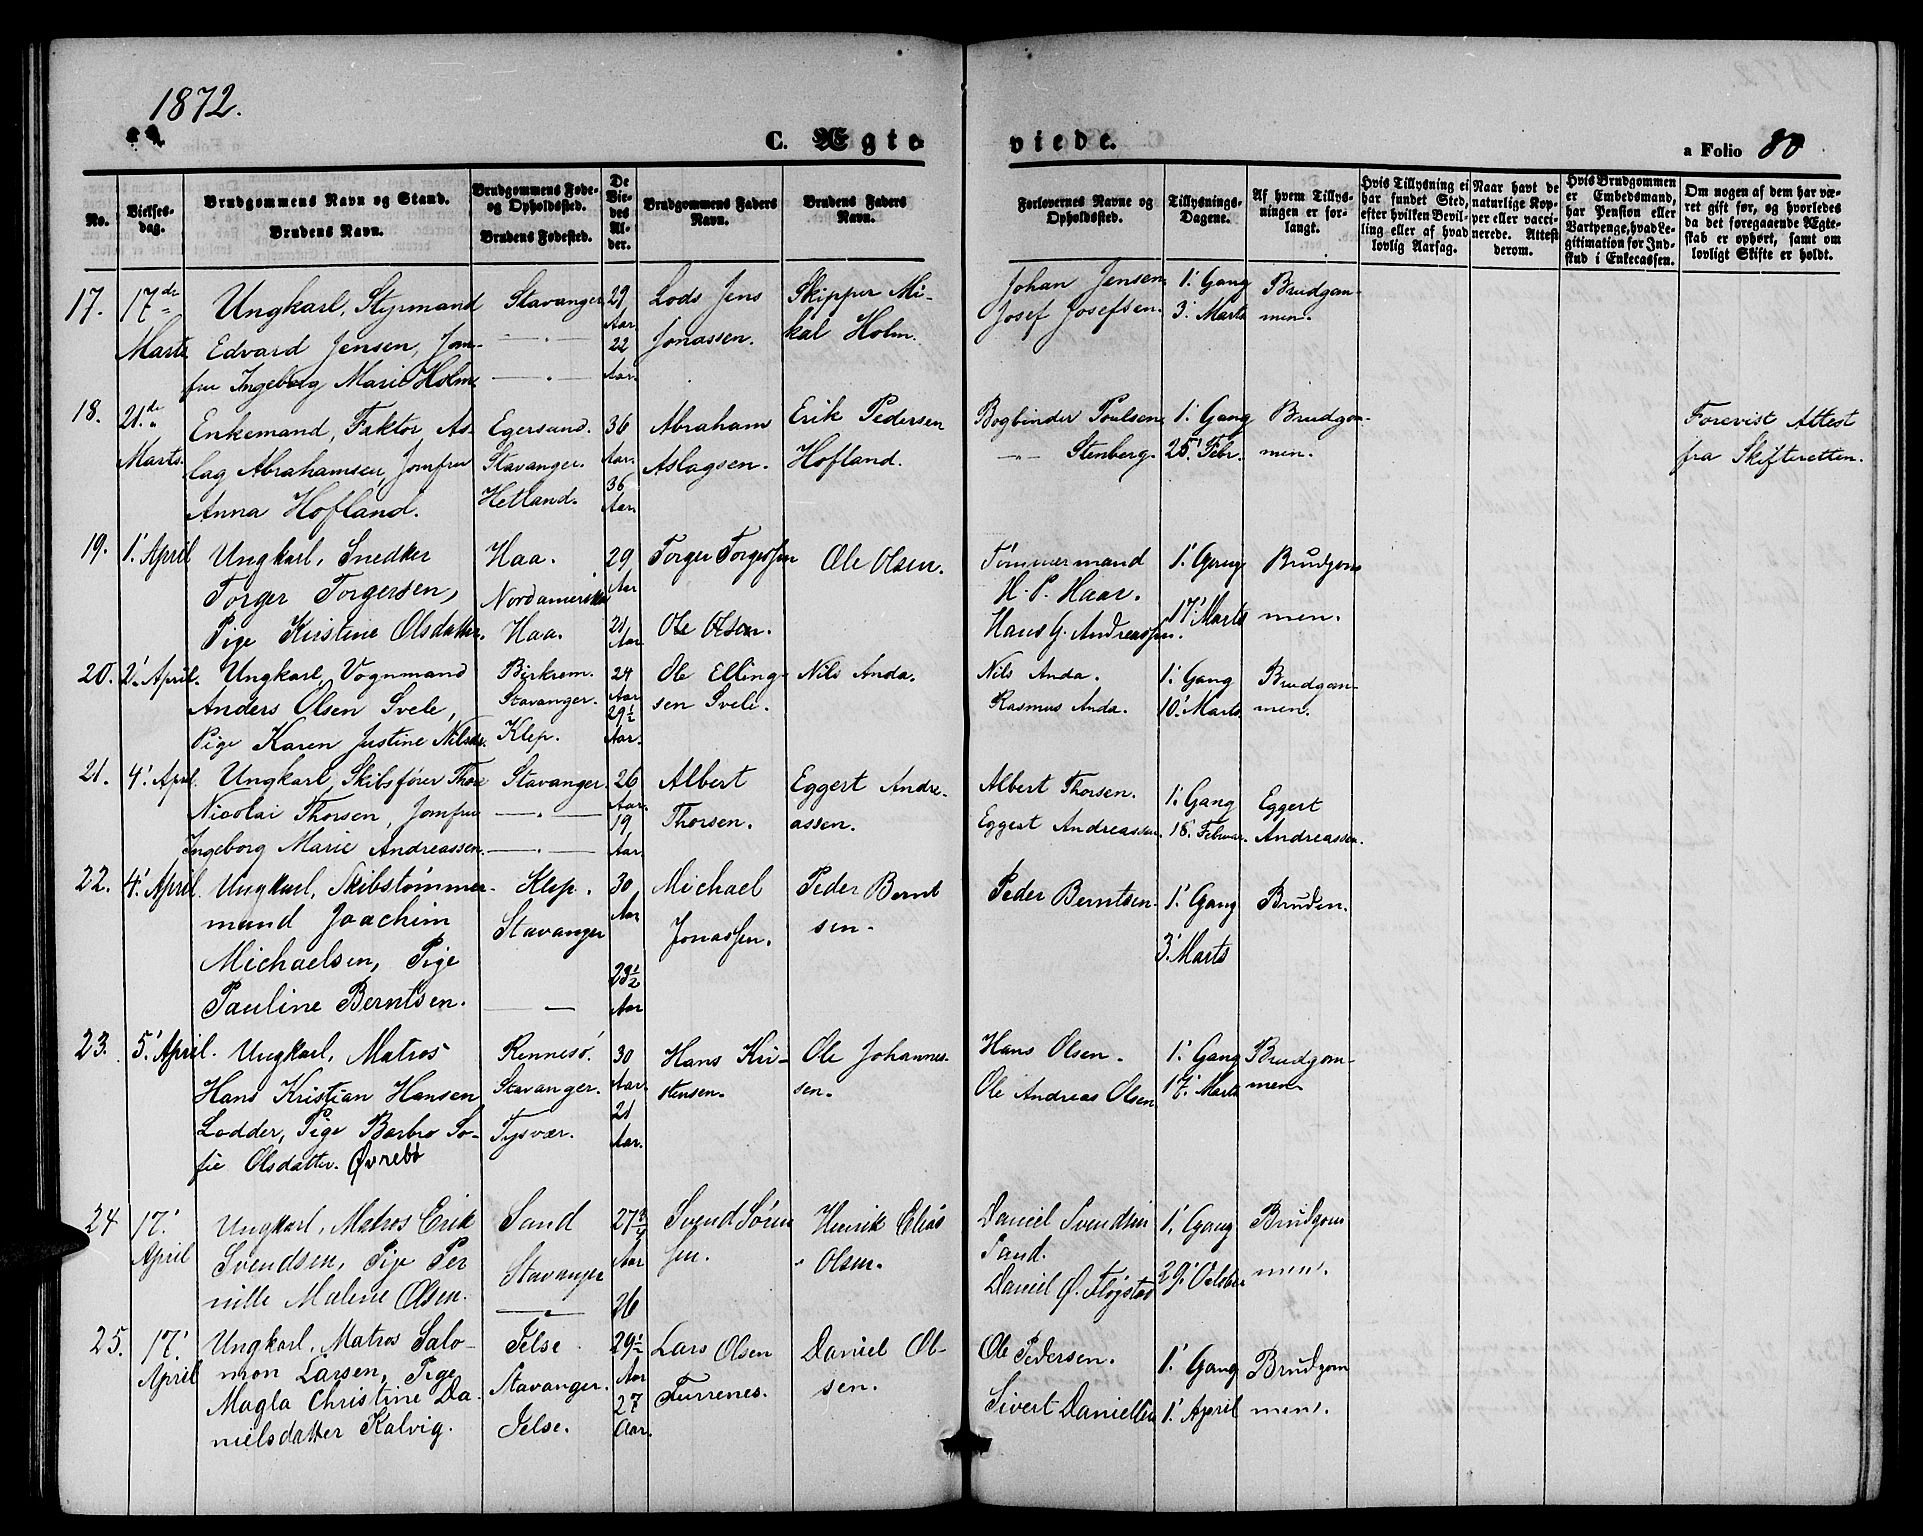 1872.
C. Ægteviede.
a Folio 80
No.
Vielsesdag.
Brudgommens Navn og Stand.
Brudens Navn.
Brudgommens Føde- og Opholdssted.
Brudens Fødested.
De Viedes Alder.
Brudgommens Faders Navn.
Brudens Faders Navn.
Forlovernes Navne og Opholdssted.
Tillysnings-Dagene.
Af hvem Tillysningen er forlangt.
Hvis Tillysning ei har fundet Sted, efter hvilken Bevilling eller af hvad lovlig Aarsag.
Naar havt de naturlige Kopper eller vaccinerede. Attest derom.
Hvis Brudgommen er Embedsmand, har Pension eller Vartpenge, hvad Legitimation for Indskud i Enkecassen.
Om nogen af dem har været gift før, og hvorledes da det foregaaende Ægteskab er ophørt, samt om lovligt Skifte er holdt.
17. 17de Marts Ungkarl, Styrmand Stavanger 29 Aar Lods Jens Skipper Mi- Johan Jensen 1' Gang Brudgom-
Edvard Jensen, Jom- — " — 22 Jonassen. kal Holm. Josef Josefsen. 3' Marts men.
fru Ingeborg Marie Holm — " — Aar.
18. 21de Marts. Enkemand, Faktor As- Egersund. 36 Aar. Abraham Erik Pedersen Bogbinder Poulsen 1' Gang Brudgom- Forevist Attest
lag Abrahamsen, Jomfru Stavanger. 36 Aslagsen. Hofland. — " — Stenberg. 25' Febr. men. fra Skifteretten.
Anna Hofland. Hetland. Aar.
19. 1' April Ungkarl, Snedker Haa. 29 Aar Torger Torgerssen Ole Olsen. Tömmermand 1' Gang Brudgom
Torger Torgersen, Nordamerika H. P. Haar. 17' Marts men.
Pige Kirstine Olsdatter. Haa. 21 Aar Ole Olsen. Hans G. Andreassen.
20. 2' April. Ungkarl, Vognmand Birkrem. 24 Aar Ole Elling- Nils Anda. Nils Anda. 1' Gang Brudgom-
Anders Olsen Svele, Stavanger. 29½ sen Svele. Rasmus Anda. 10' Marts men.
Pige Karen Justine Nilsdr. Klep. Aar.
21. 4' April. Ungkarl, Skibsfører Thore Stavanger 26 Aar. Albert Eggert Andre- Albert Thorsen. 1' Gang Eggert
Nicolai Thorsen, Jomfru — " — 19 Thorsen. assen. Eggert Andreassen. 18. Februar. Andreassen.
Ingeborg Marie Andreassen. — " — Aar.
22. 4' April. Ungkarl, Skibstømmer- Klep. 30 Aar Michael Peder Bernt Peder Berntsen. 1' Gang Bruden.
mand Joachim Stavanger Jonassen. sen. 3' Marts
Michaelsen, Pige 28½
Pauline Berntsen. — — Aar
23. 5' April. Ungkarl, Matros Rennesö. 30 Aar. Hans Kri- Ole Johannes- Hans Olsen. 1' Gang Brudgom-
Hans Kristian Hansen Stavanger. 21 stensen. sen. Ole Andreas Olsen 17' Marts men.
Lodder, Pige Barbro So- Tysvær. Aar.
fie Olsdatter. Øvrebø
24 17' April Ungkarl, Matros Erik Sand 27¾ Aar Svend Sören Henrik Elias Daniel Svendsen 1' Gang Brudgom
Svendsen, Pige Per Stavanger sen. Olsen. Sand. 29' October men.
nille Malene Olsen. — " — 26 Daniel Ø. Fløgstad
25. 17' April Ungkarl, Matros Salo- Jelse 29½ Lars Olsen Daniel Ol- Ole Pedersen. 1' Gang Brudgom
mon Larsen, Pige Stavanger. Aar Furrenes. sen. Sivert Danielsen 1' April men.
Magla Christine Da- Jelse. 27
nielsdatter Kalvig. Aar.